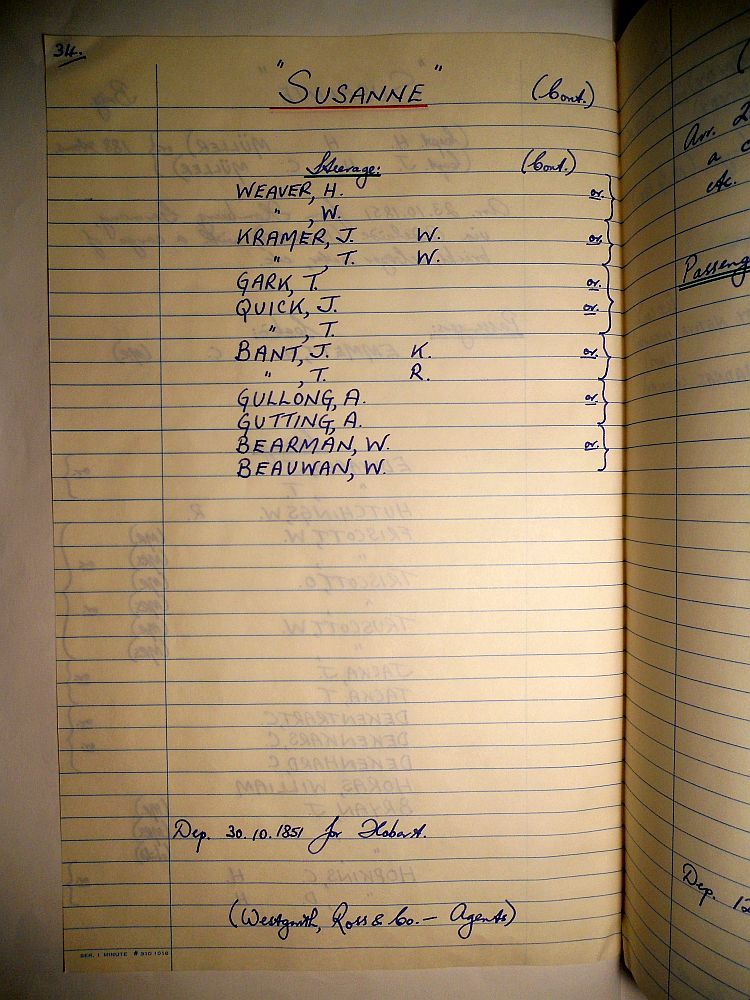 34.
"SUSANNE" (Cont.)
Steerage: (Cont.)
WEAVER, H. or.
" , W.
KRAMER, J. W. or.
" , T. W.
GARK, T. or.
QUICK, J. or.
" , T.
BANT, J. K. or.
" , T. R.
GULLONG, A. or.
GUTTING, A.
BEARMAN, W. or.
BEAUWAN, W.
Dep. 30.10.1851 for Hobart.
(Westgarth, Ross & Co. — Agents)
SER. 1 MINUTE # 310 1016
Arr. 2
a c
etc.
Passeng
Dep. 12